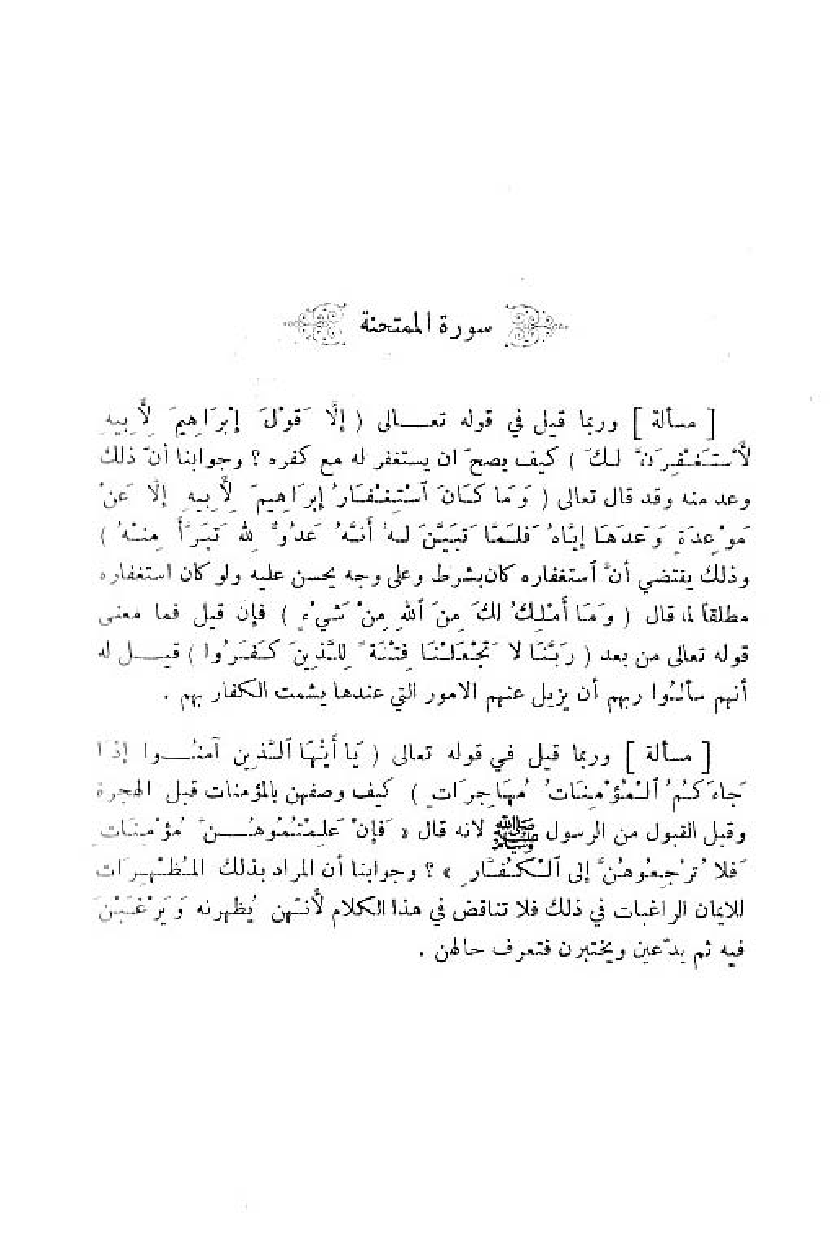 سورة الممتحنة
[ مسألة ] وربما قيل في قوله تعـــالى ( إِلَّا قَوْلَ إِبْرَاهِيمَ لِأَبِيهِ
لَأَسْتَغْفِرَنَّ لَكَ ) كيف يصحّ ان يستغفر له مع كفره ؟ وجوابنا أنّ ذلك
وعد منه وقد قال تعالى ( وَمَا كَانَ ٱسْتِغْفَارُ إِبرَاهِيمَ لِأَبِيهِ إِلَّا عَنْ
مَوْعِدَةٍ وَعَدَهَا إِيَّاهُ فَلَمَّا تَبَيَّنَ لَهُ أَنَّهُ عَدُوٌّ لِلهِ تَبَرَّأَ مِنْهُ )
وذلك يقتضي أنّ ٱستغفاره كان بشرط وعلى وجه يحسن عليه ولو كان استغفاره
مطلقاً لما قال ( وَمَا أَمْلِكُ لَكَ مِنَ ٱللهِ مِنْ شَيْءٍ ) فإن قيل فما معنى
قوله تعالى من بعد ( رَبَّنَا لَا تَجْعَلْنَا فِتْنَةً لِلَّذِينَ كَفَرُوا ) قيـــل له
أنهم سألوا ربهم أن يزيل عنهم الامور التي عندها يشمت الكفار بهم .
[ مسألة ] وربما قيل في قوله تعالى ( يَا أَيُّهَا ٱلَّذِين آمَنُـــوا إِذَا
جَاءَكُمُ ٱلْمُؤْمِنَاتُ مُهَاجِرَاتٍ ) كيف وصفهن بالمؤمنات قبل الهجرة
وقبل القبول من الرسول ﷺ لانه قال « فَإِنْ عَلِمْتُمُوهُـــنَّ مُؤْمِنَاتٍ
فَلا تَرْجِعُوهُنَّ إِلى ٱلْكُفَّارِ » ؟ وجوابنا أن المراد بذلك المُظْهِرَات
للايمان الراغبات في ذلك فلا تناقض في هذا الكلام لأَنهن يُظهرنه وَيَرْغَبْنَ
فيه ثم يدّعين ويختبرن فتعرف حالهن .